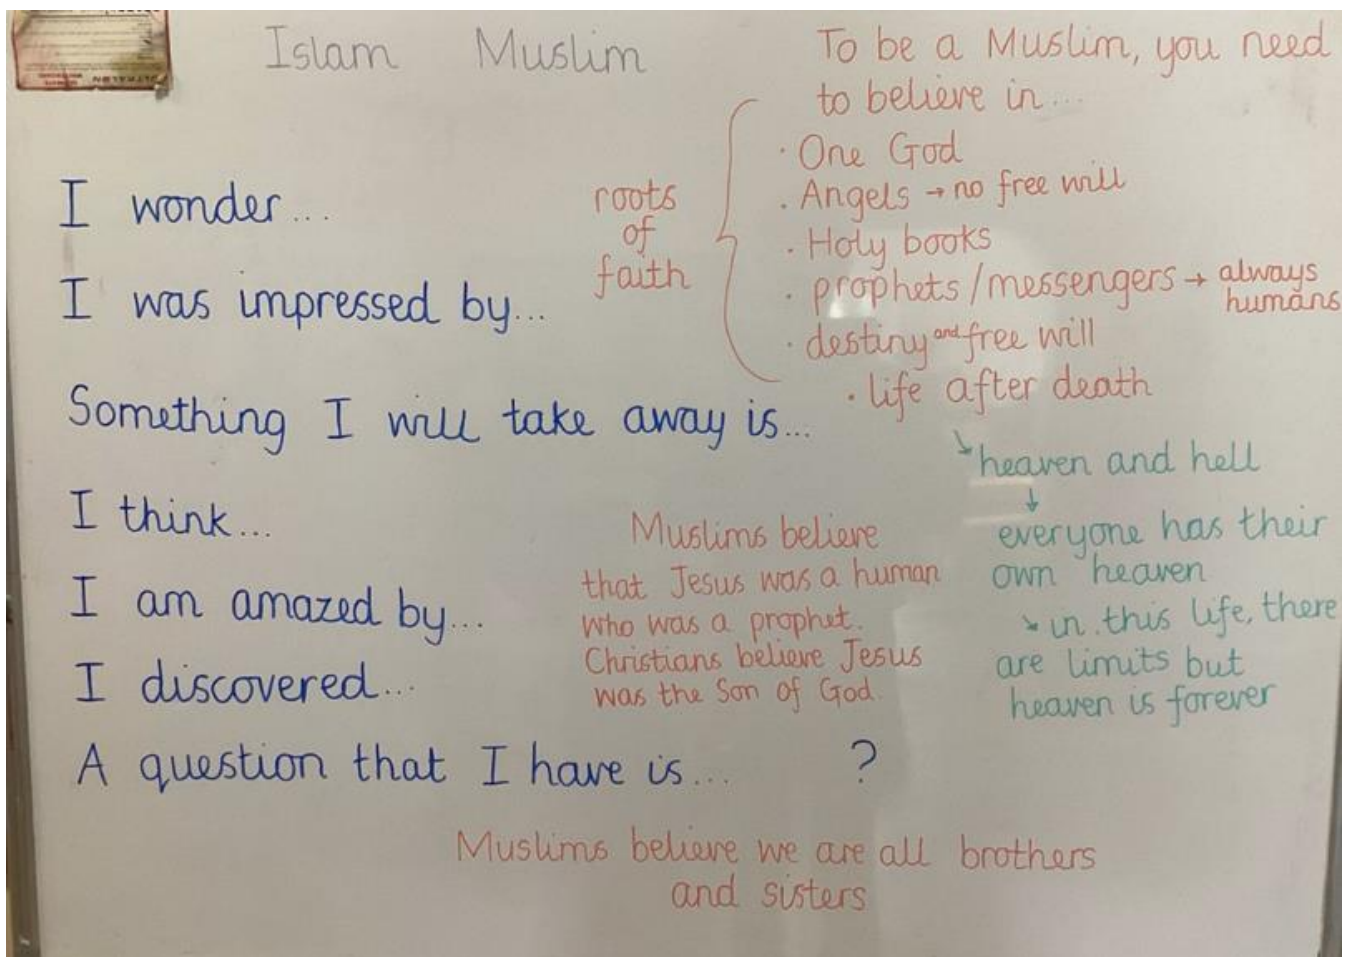 Islam Muslim
To be a Muslim, you need
to believe in...
· One God
· Angels → no free will
· Holy books
· prophets/messengers → always
humans
· destiny and free will
· life after death
roots
of
faith
heaven and hell
↓
everyone has their
own heaven
↘ in this life, there
are limits but
heaven is forever
I wonder...
I was impressed by...
Something I will take away is...
I think...
I am amazed by...
I discovered...
A question that I have is... ?
Muslims believe
that Jesus was a human
who was a prophet.
Christians believe Jesus
was the Son of God.
Muslims believe we are all brothers
and sisters